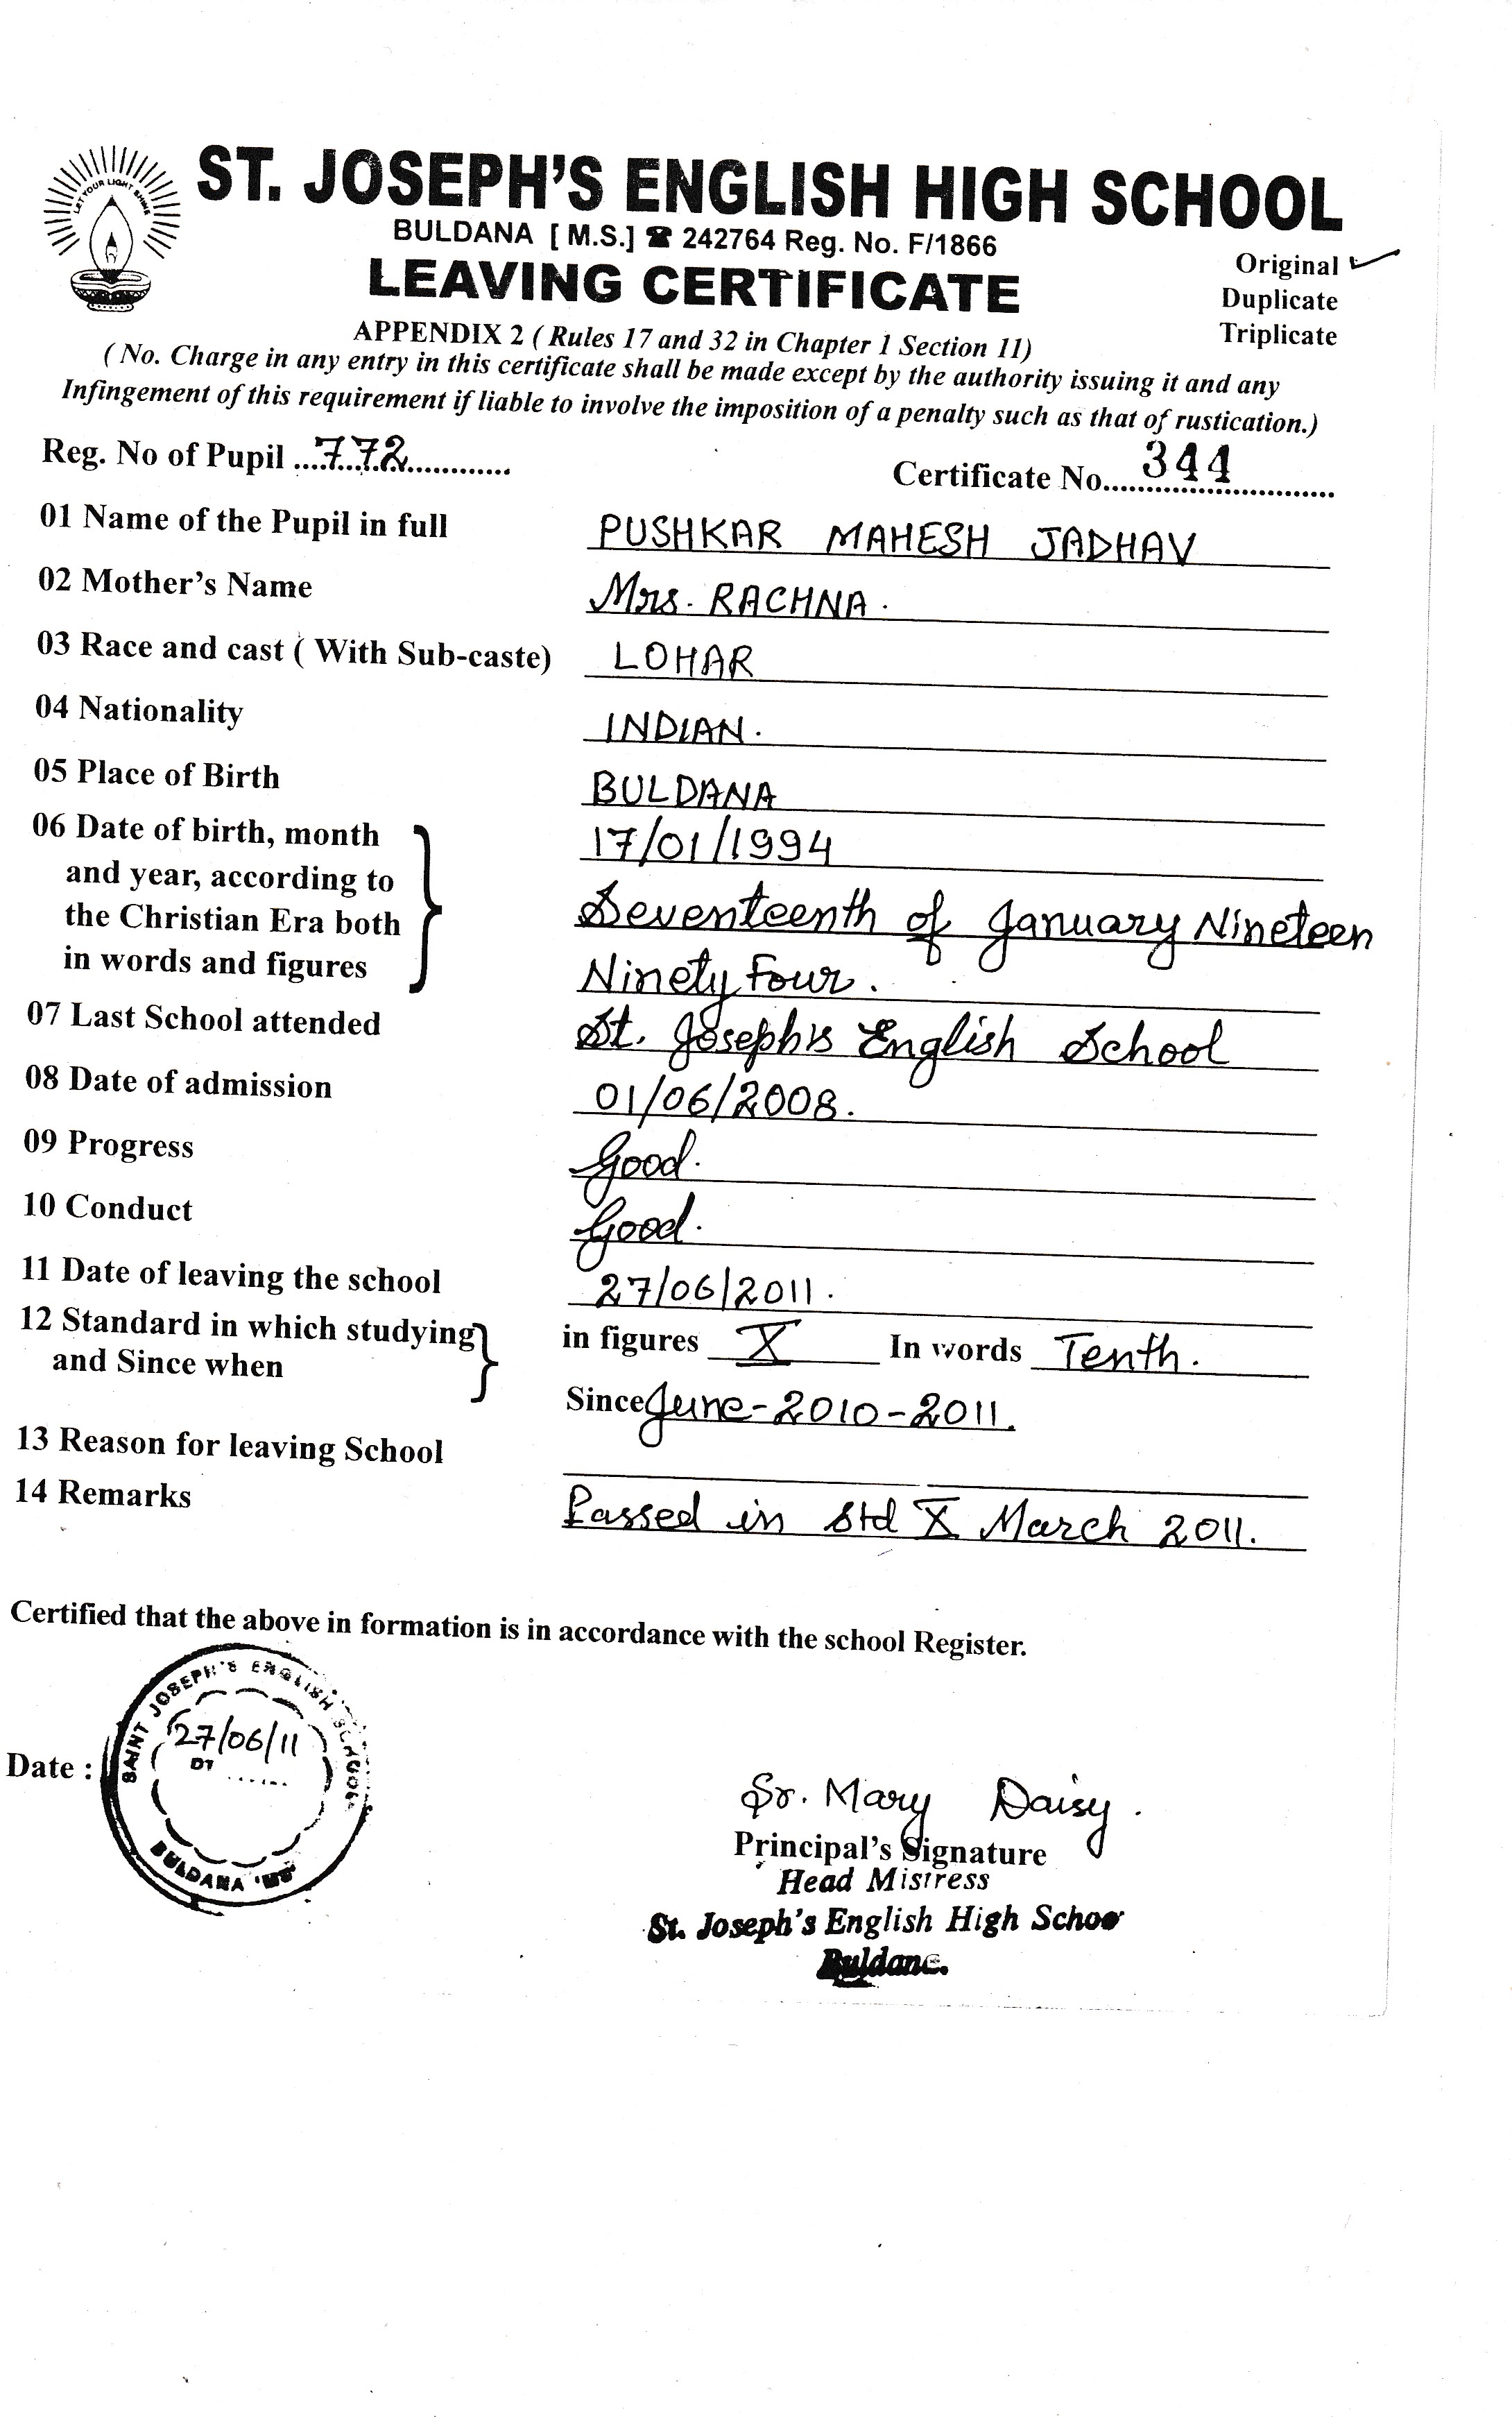 LET YOUR LIGHT SHINE
ST. JOSEPH'S ENGLISH HIGH SCHOOL
BULDANA [ M.S.] ☎ 242764 Reg. No. F/1866
LEAVING CERTIFICATE
Original ✓
Duplicate
Triplicate
APPENDIX 2 ( Rules 17 and 32 in Chapter 1 Section 11)
( No. Charge in any entry in this certificate shall be made except by the authority issuing it and any
Infingement of this requirement if liable to involve the imposition of a penalty such as that of rustication.)
Reg. No of Pupil ...772............ Certificate No....344............
01 Name of the Pupil in full PUSHKAR MAHESH JADHAV
02 Mother's Name Mrs. RACHNA.
03 Race and cast ( With Sub-caste) LOHAR
04 Nationality INDIAN.
05 Place of Birth BULDANA
06 Date of birth, month 17/01/1994
and year, according to
the Christian Era both Seventeenth of January Nineteen
in words and figures Ninety Four.
07 Last School attended St. Joseph's English School
08 Date of admission 01/06/2008.
09 Progress Good.
10 Conduct Good.
11 Date of leaving the school 27/06/2011.
12 Standard in which studying in figures X In words Tenth.
and Since when Since June-2010-2011.
13 Reason for leaving School
14 Remarks Passed in Std X March 2011.
Certified that the above in formation is in accordance with the school Register.
SAINT JOSEPH'S ENGLISH SCHOOL
27/06/11
DT ......
Date :
BULDANA 'MS'
Sr. Mary Daisy.
Principal's Signature
Head Mistress
St. Joseph's English High Schoo
Buldana.